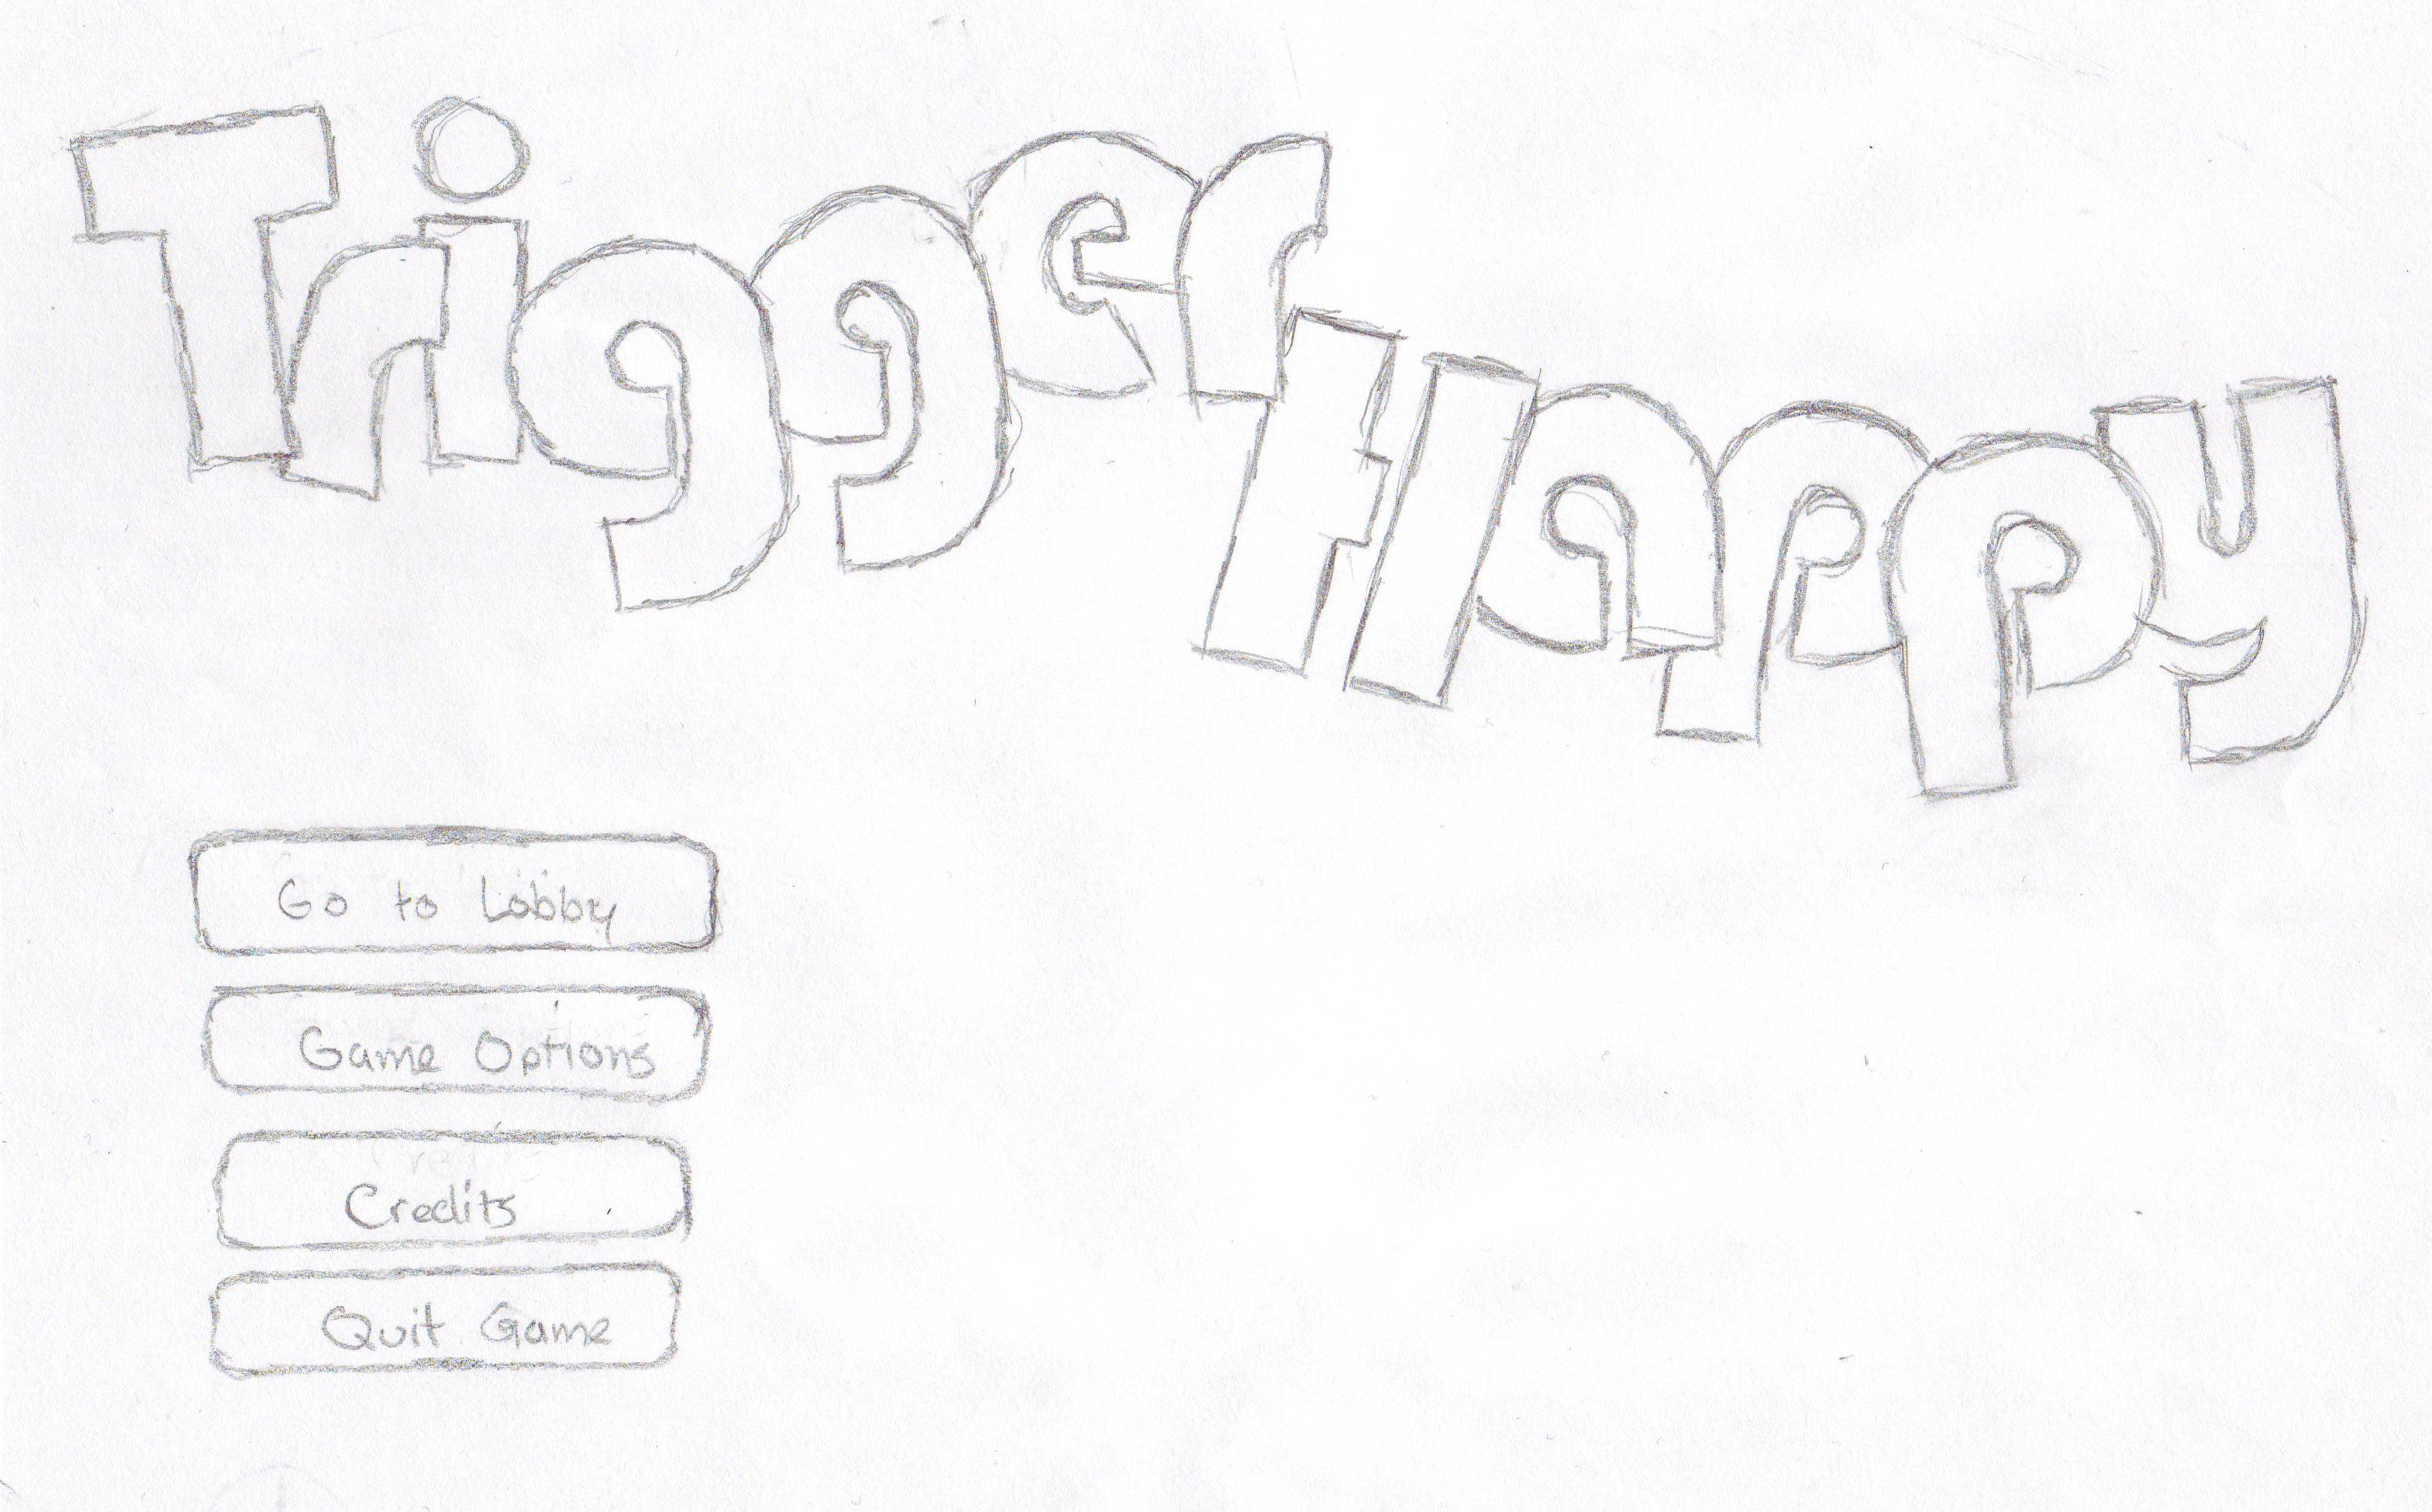 Trigger
Happy
Go to Lobby
Game Options
Credits
Quit Game